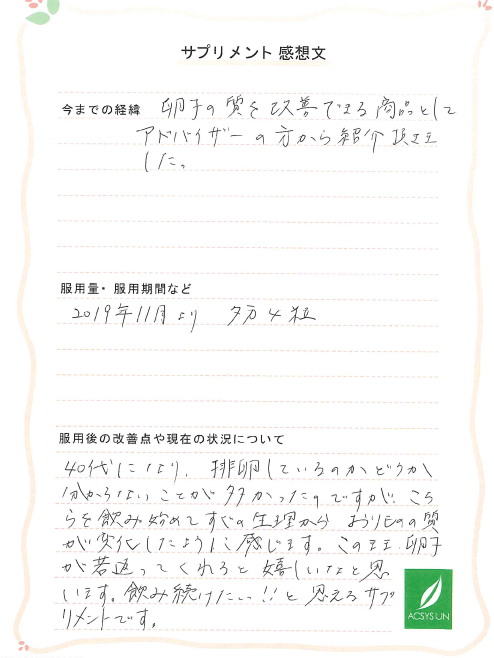 サプリメント 感想文
今までの経緯 卵子の質を改善できる商品として
アドバイザーの方から紹介頂きま
した。
服用量・服用期間など
2019年11月より 夕方4粒
服用後の改善点や現在の状況について
40代になり、排卵しているのかどうか
分からないことが多かったのですが、こち
らを飲み始めてすぐの生理から おりものの質
が変化したように感じます。このまま、卵子
が若返ってくれると嬉しいなと思
います。飲み続けたい!!と思えるサプ
リメントです。
ACSYSUN